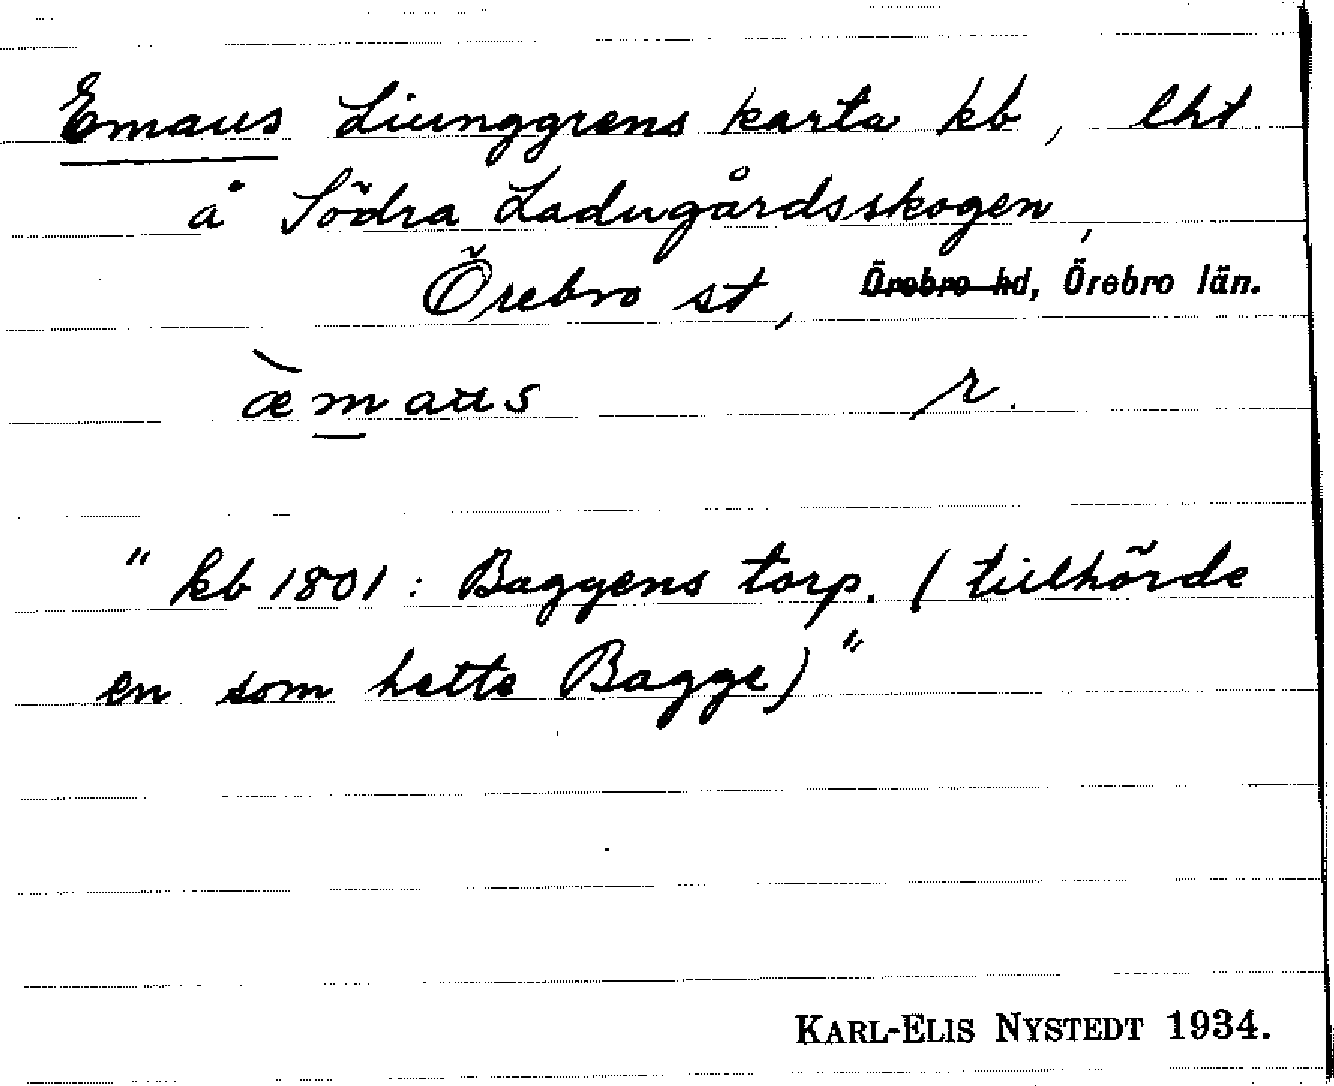 Emaus Liunggrens karta kb, lht
å Södra Ladugårdsskogen,
Örebro st, Örebro hd, Örebro län.
æ̀maus r.
"kb 1801: Baggens torp. (tillhörde
en som hette Bagge)"
KARL-ELIS NYSTEDT 1934.